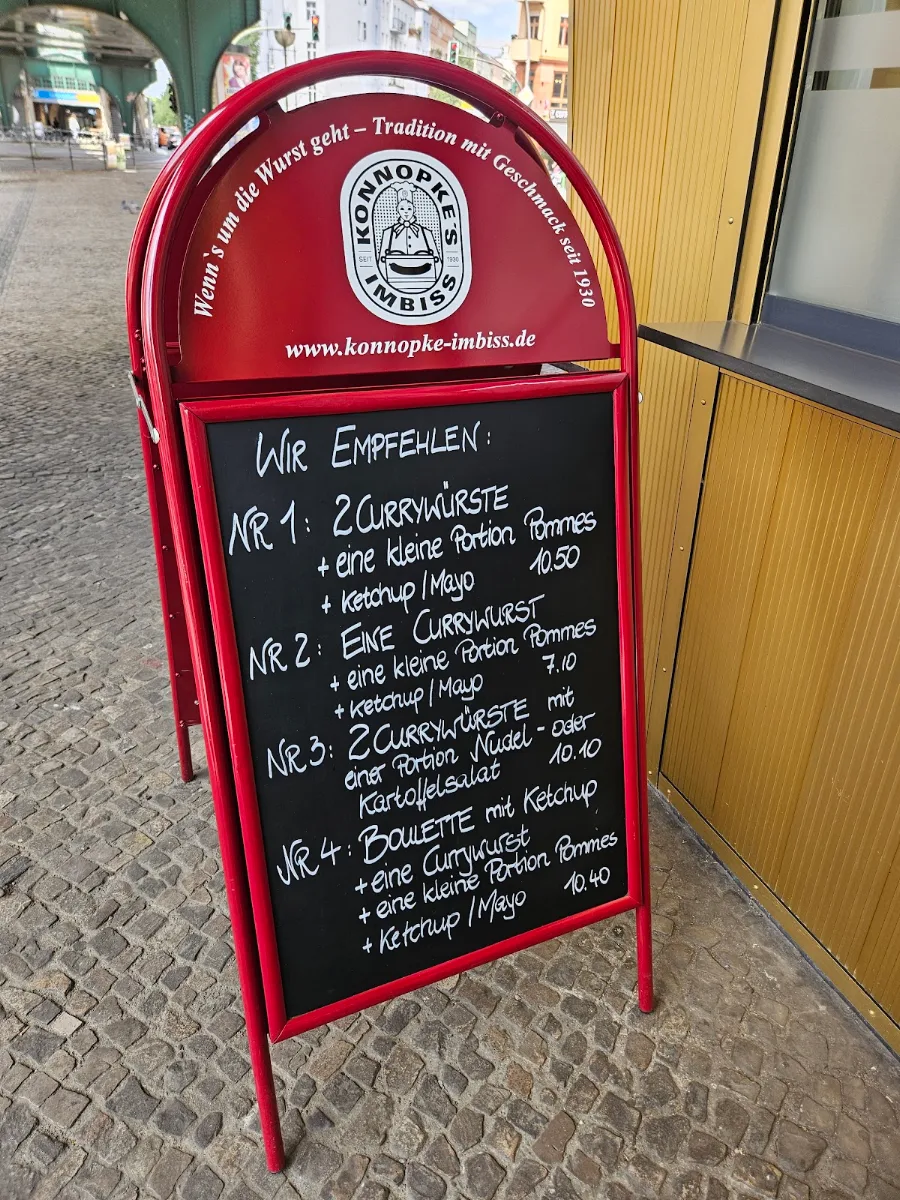 Wenn`s um die Wurst geht – Tradition mit Geschmack seit 1930
KONNOPKE'S
SEIT 1930
IMBISS
www.konnopke-imbiss.de
WIR EMPFEHLEN:
NR 1: 2 CURRYWÜRSTE
+ eine kleine Portion Pommes
+ Ketchup / Mayo 10.50
NR 2: EINE CURRYWURST
+ eine kleine Portion Pommes
+ Ketchup / Mayo 7.10
NR 3: 2 CURRYWÜRSTE mit
einer Portion Nudel- oder
Kartoffelsalat 10.10
NR 4: BOULETTE mit Ketchup
+ eine Currywurst
+ eine kleine Portion Pommes
+ Ketchup / Mayo 10.40